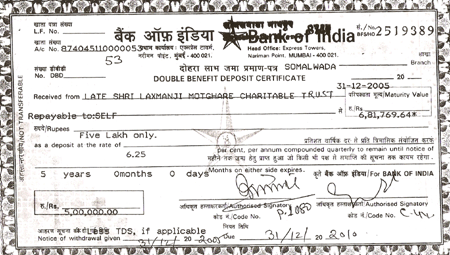 खाता पत्रा संख्या
L.F. No.
बैंक ऑफ़ इंडिया Bank of India
BF/SH 2519389
खाता संख्या
A/c No. 87404511000005 प्रधान कार्यालय: एक्सप्रेस टावर्स, Head Office: Express Towers,
53 नरीमन पॉइंट, मुंबई - 400 021. Nariman Point, MUMBAI - 400 021.
शाखा
Branch
संख्या डीबीडी
No. DBD
दोहरा लाभ जमा प्रमाण-पत्र SOMALWADA
DOUBLE BENEFIT DEPOSIT CERTIFICATE
31-12-2005
Received from LATE SHRI LAXMANJI MOTGHARE CHARITABLE TRUST
परिपक्वता मूल्य/Maturity Value
Repayable to:SELF
से रु./Rs. 6,81,769.64*
रुपये/Rupees Five Lakh only.
प्रतिशत वार्षिक दर से प्रति तिमाही संयोजित करके
as a deposit at the rate of 6.25 per cent, per annum compounded quarterly to remain until notice of
5 years 0months 0 days
Months on either side expires.
कृते बैंक ऑफ़ इंडिया/For BANK OF INDIA
रु./Rs. 5,00,000.00
प्राधिकृत हस्ताक्षरकर्ता/Authorised Signatory
प्राधिकृत हस्ताक्षरकर्ता/Authorised Signatory
कोड नं./Code No. P.1080
कोड नं./Code No.
Less TDS, if applicable
Notice of withdrawal given 31/12/2005
नियत तिथि
Due 31/12/2010
अहस्तांतरणीय/NOT TRANSFERABLE